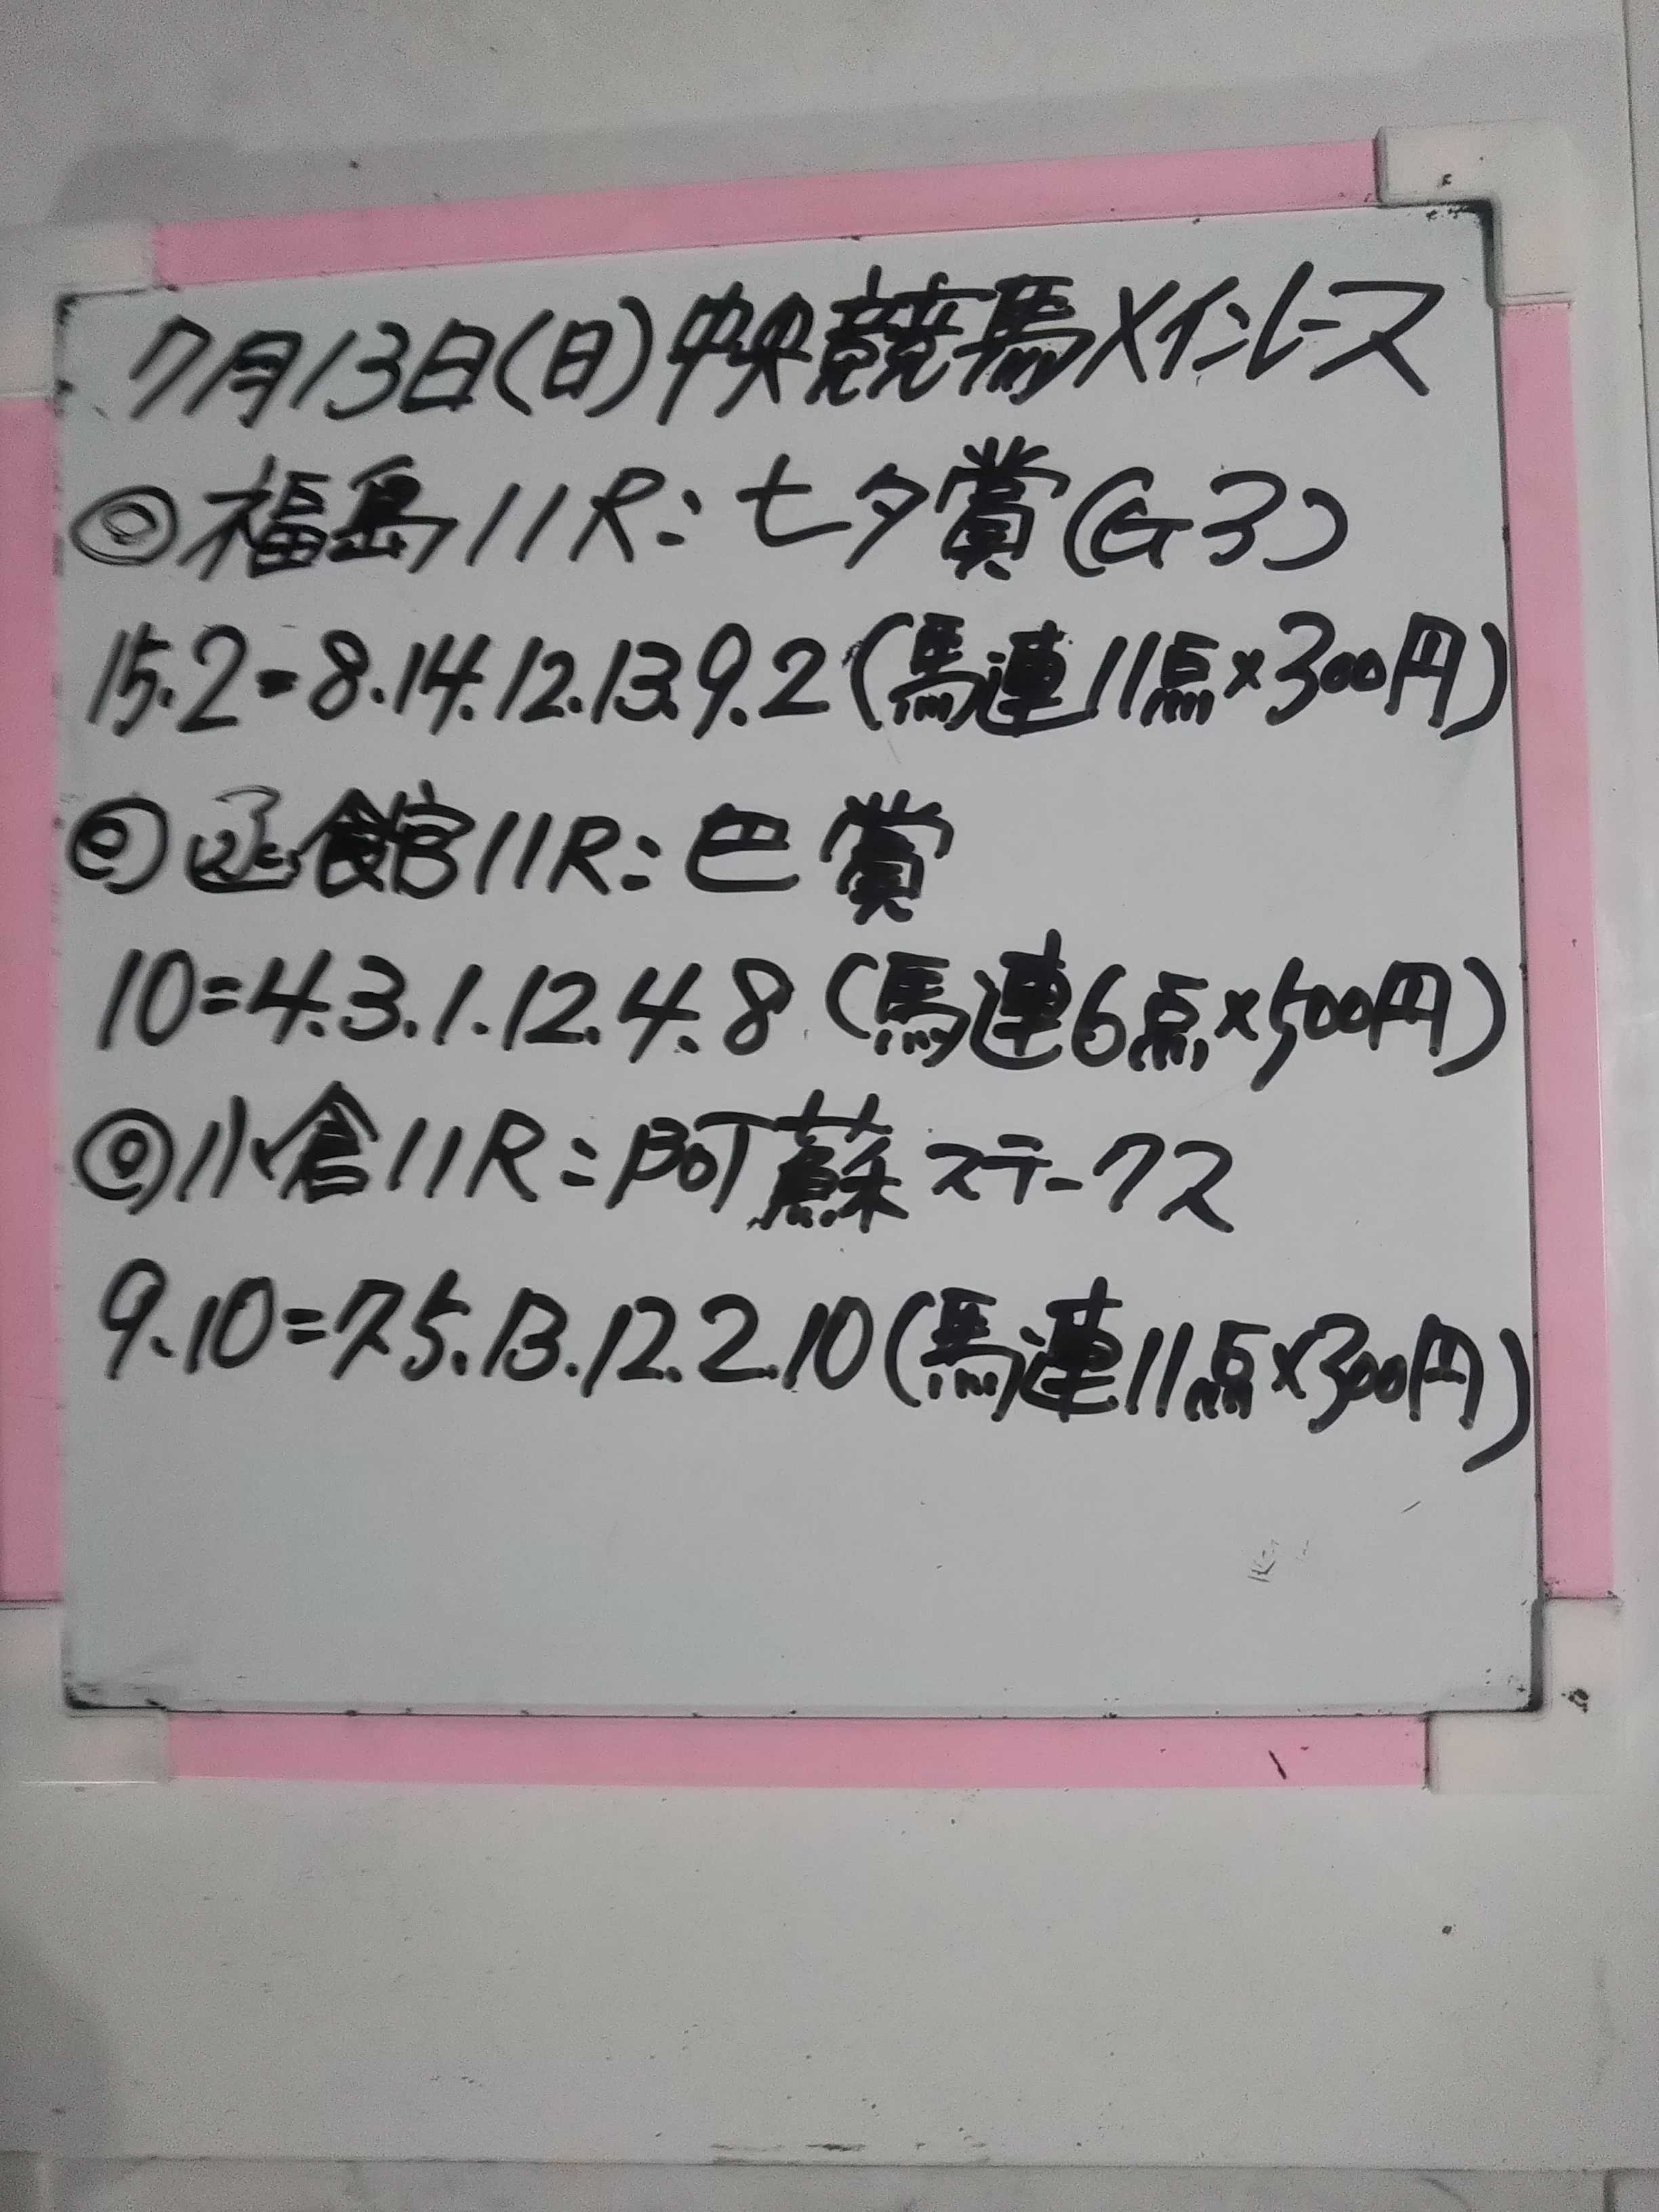 7月13日(日)中央競馬メインレース
◎福島11R:七夕賞(G3)
15.2=8.14.12.13.9.2(馬連11点×300円)
◎函館11R:巴賞
10=4.3.1.12.4.8(馬連6点×500円)
◎小倉11R:阿蘇ステークス
9.10=7.5.13.12.2.10(馬連11点×300円)